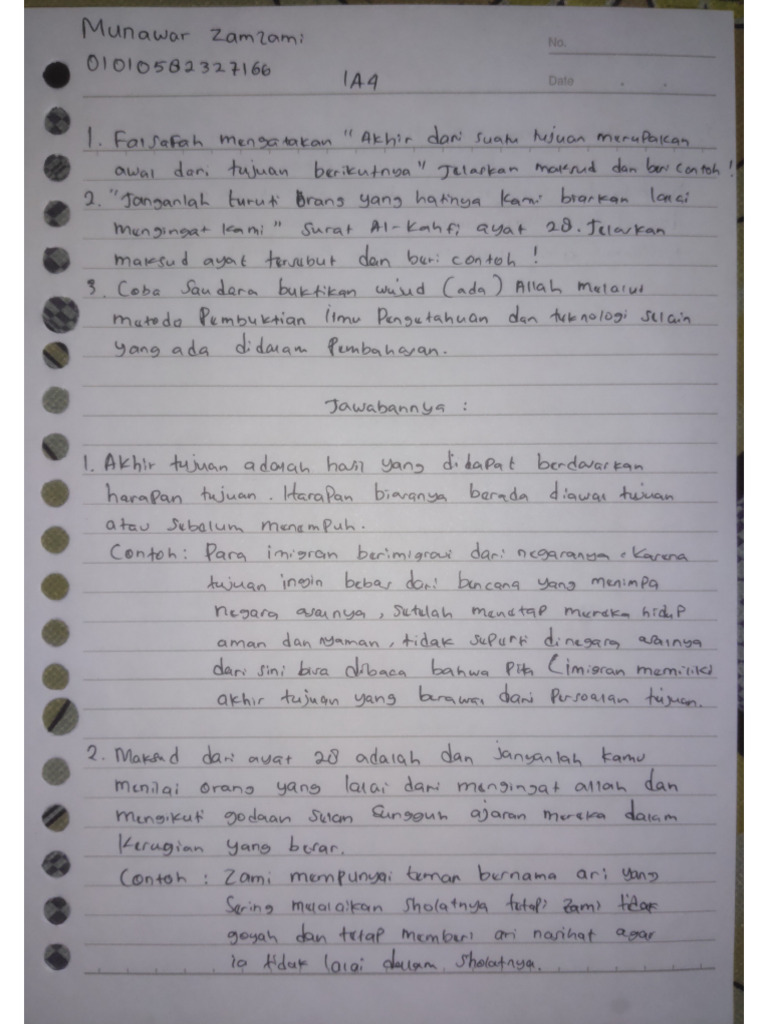 Munawar Zamzami
01010582327166
1A4
No.
Date
1. Falsafah mengatakan "Akhir dari suatu tujuan merupakan
awal dari tujuan berikutnya" Jelaskan maksud dan beri contoh!
2. "Janganlah turuti orang yang hatinya kami biarkan lalai
mengingat kami" surat Al-Kahfi ayat 28. Jelaskan
maksud ayat tersebut dan beri contoh!
3. Coba saudara buktikan wujud (ada) Allah melalui
metode Pembuktian ilmu Pengetahuan dan teknologi selain
yang ada didalam Pembahasan.
Jawabannya :
1. Akhir tujuan adalah hasil yang didapat berdasarkan
harapan tujuan. Harapan biasanya berada diawal tujuan
atau sebelum menempuh.
Contoh: Para imigran berimigrasi dari negaranya. Karena
tujuan ingin bebas dari bencana yang menimpa
negara asalnya, setelah menetap mereka hidup
aman dan nyaman, tidak seperti dinegara asalnya
dari sini bisa dibaca bahwa (imigran memiliki
akhir tujuan yang berawal dari Persoalan tujuan.
2. Maksud dari ayat 28 adalah dan janganlah kamu
menilai orang yang lalai dari mengingat allah dan
mengikuti godaan setan sungguh ajaran mereka dalam
kerugian yang besar.
Contoh : Zami mempunyai teman bernama ari yang
Sering melalaikan sholatnya tetapi zami tidak
goyah dan tetap memberi ari nasihat agar
ia tidak lalai dalam sholatnya.